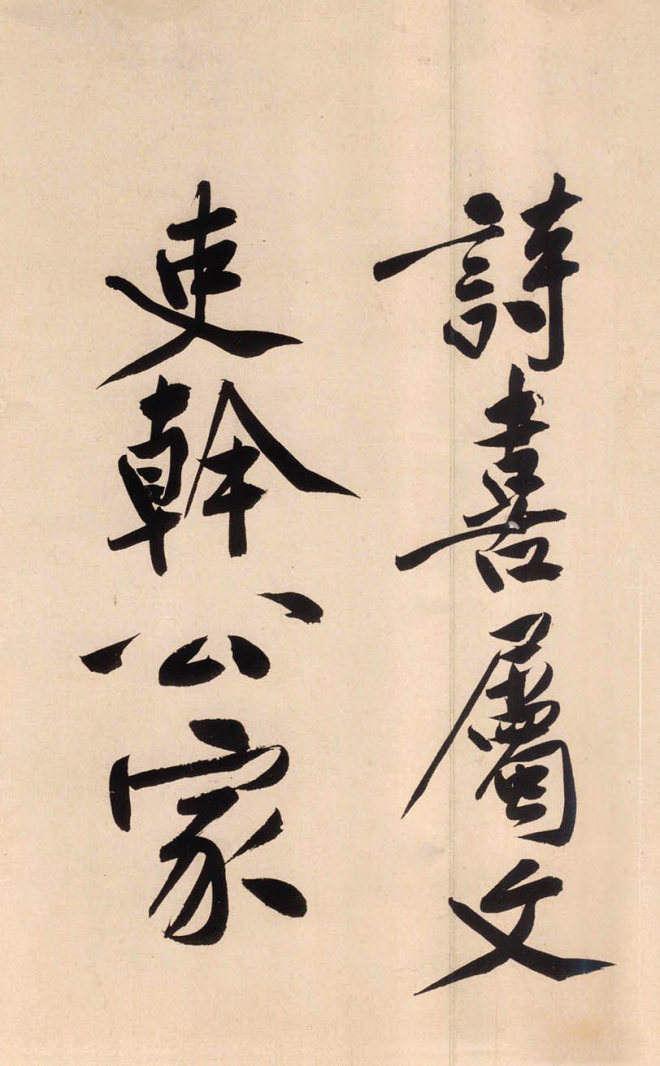 詩喜屬文
吏幹公家